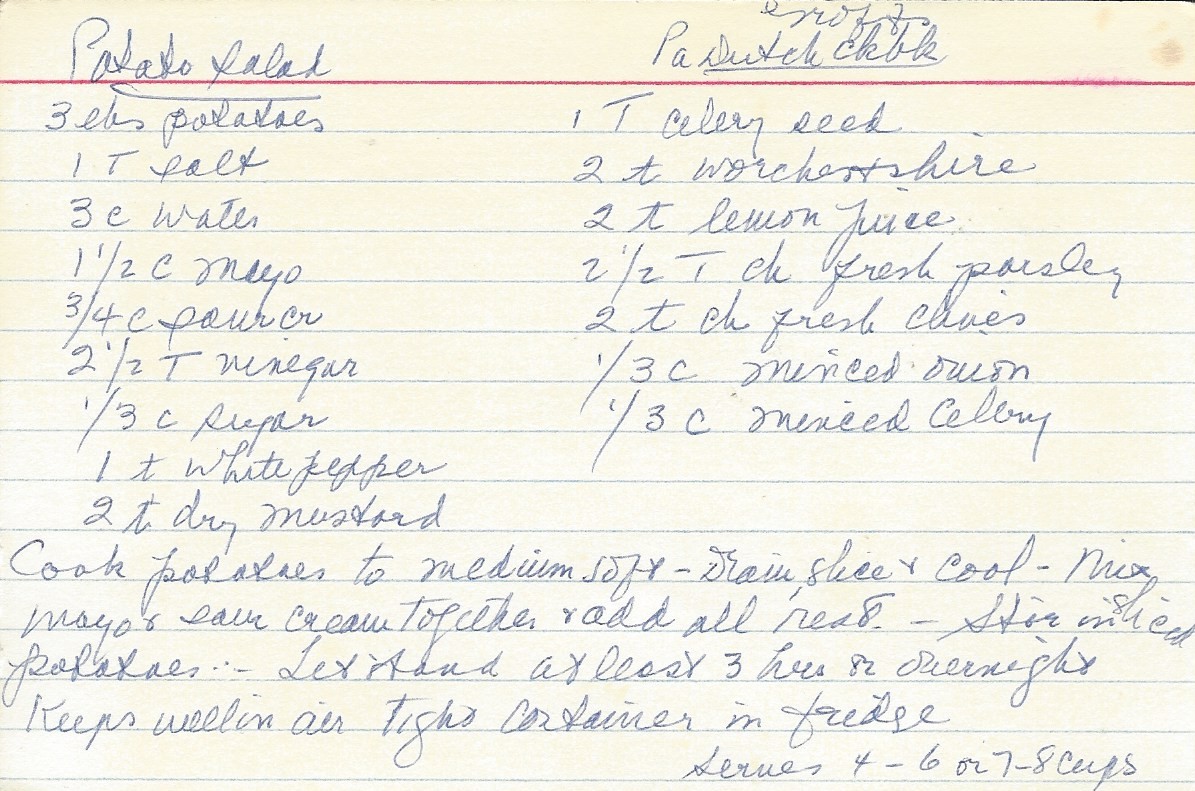 Potato Salad
Pa Dutch ckbk
3 lbs potatoes
1 T salt
3 c water
1 1/2 c mayo
3/4 c sour cr
2 1/2 T vinegar
1/3 c sugar
1 t white pepper
2 t dry mustard
1 T celery seed
2 t worchestshire
2 t lemon juice
2 1/2 T ch fresh parsley
2 t ch fresh chives
1/3 c minced onion
1/3 c minced Celery
Cook potatoes to medium soft - Drain slice & cool - Mix
mayo & sour cream together & add all rest. - Stir in sliced
potatoes - Let stand at least 3 hrs or overnight
Keeps well in air tight container in fridge
Serves 4 - 6 or 7-8 cups